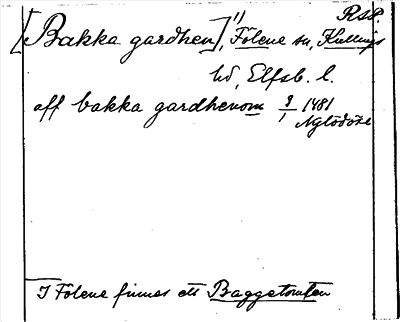 Rsp.
[Bakka gardhen]", Fölene sn, Kullings
hd, Elfsb. l.
aff bakka gardhenom 9/1 1481
Nylödöse
I Fölene finnes ett Baggetomten